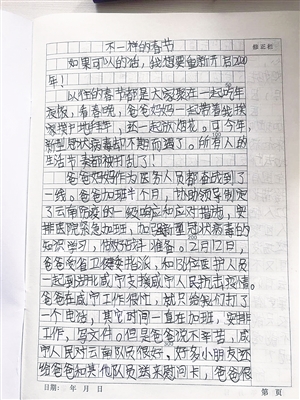 不一样的春节
如果可以的话，我想要重新开启2020
年！
以往的春节都是大家聚在一起吃年
夜饭，看春晚，爸爸妈妈一起带着我挨
家挨户地拜年，还一起放烟花。可今年，
新型冠状病毒却不期而遇了。所有人的
生活节奏都被打乱了！
爸爸妈妈作为医务人员都奋战到了
一线。爸爸加班半个月，协助领导制定
了云南防疫的一级响应和应对措施，安
排医院紧急加班，加强新型冠状病毒的
知识学习，做好战斗准备。2月12日，
爸爸受省卫健委指派，和医护人员
一起到湖北咸宁支援咸宁人民抗击疫情。
爸爸在咸宁工作很忙，就只给我们打了
一个电话，其它时间一直在加班，安排
工作，写文件。但是爸爸说不辛苦，咸
宁人民对云南队员很好，好多小朋友还
给爸爸和其他队员送来慰问卡，爸爸很
修正栏
日期： 年 月 日
第 页